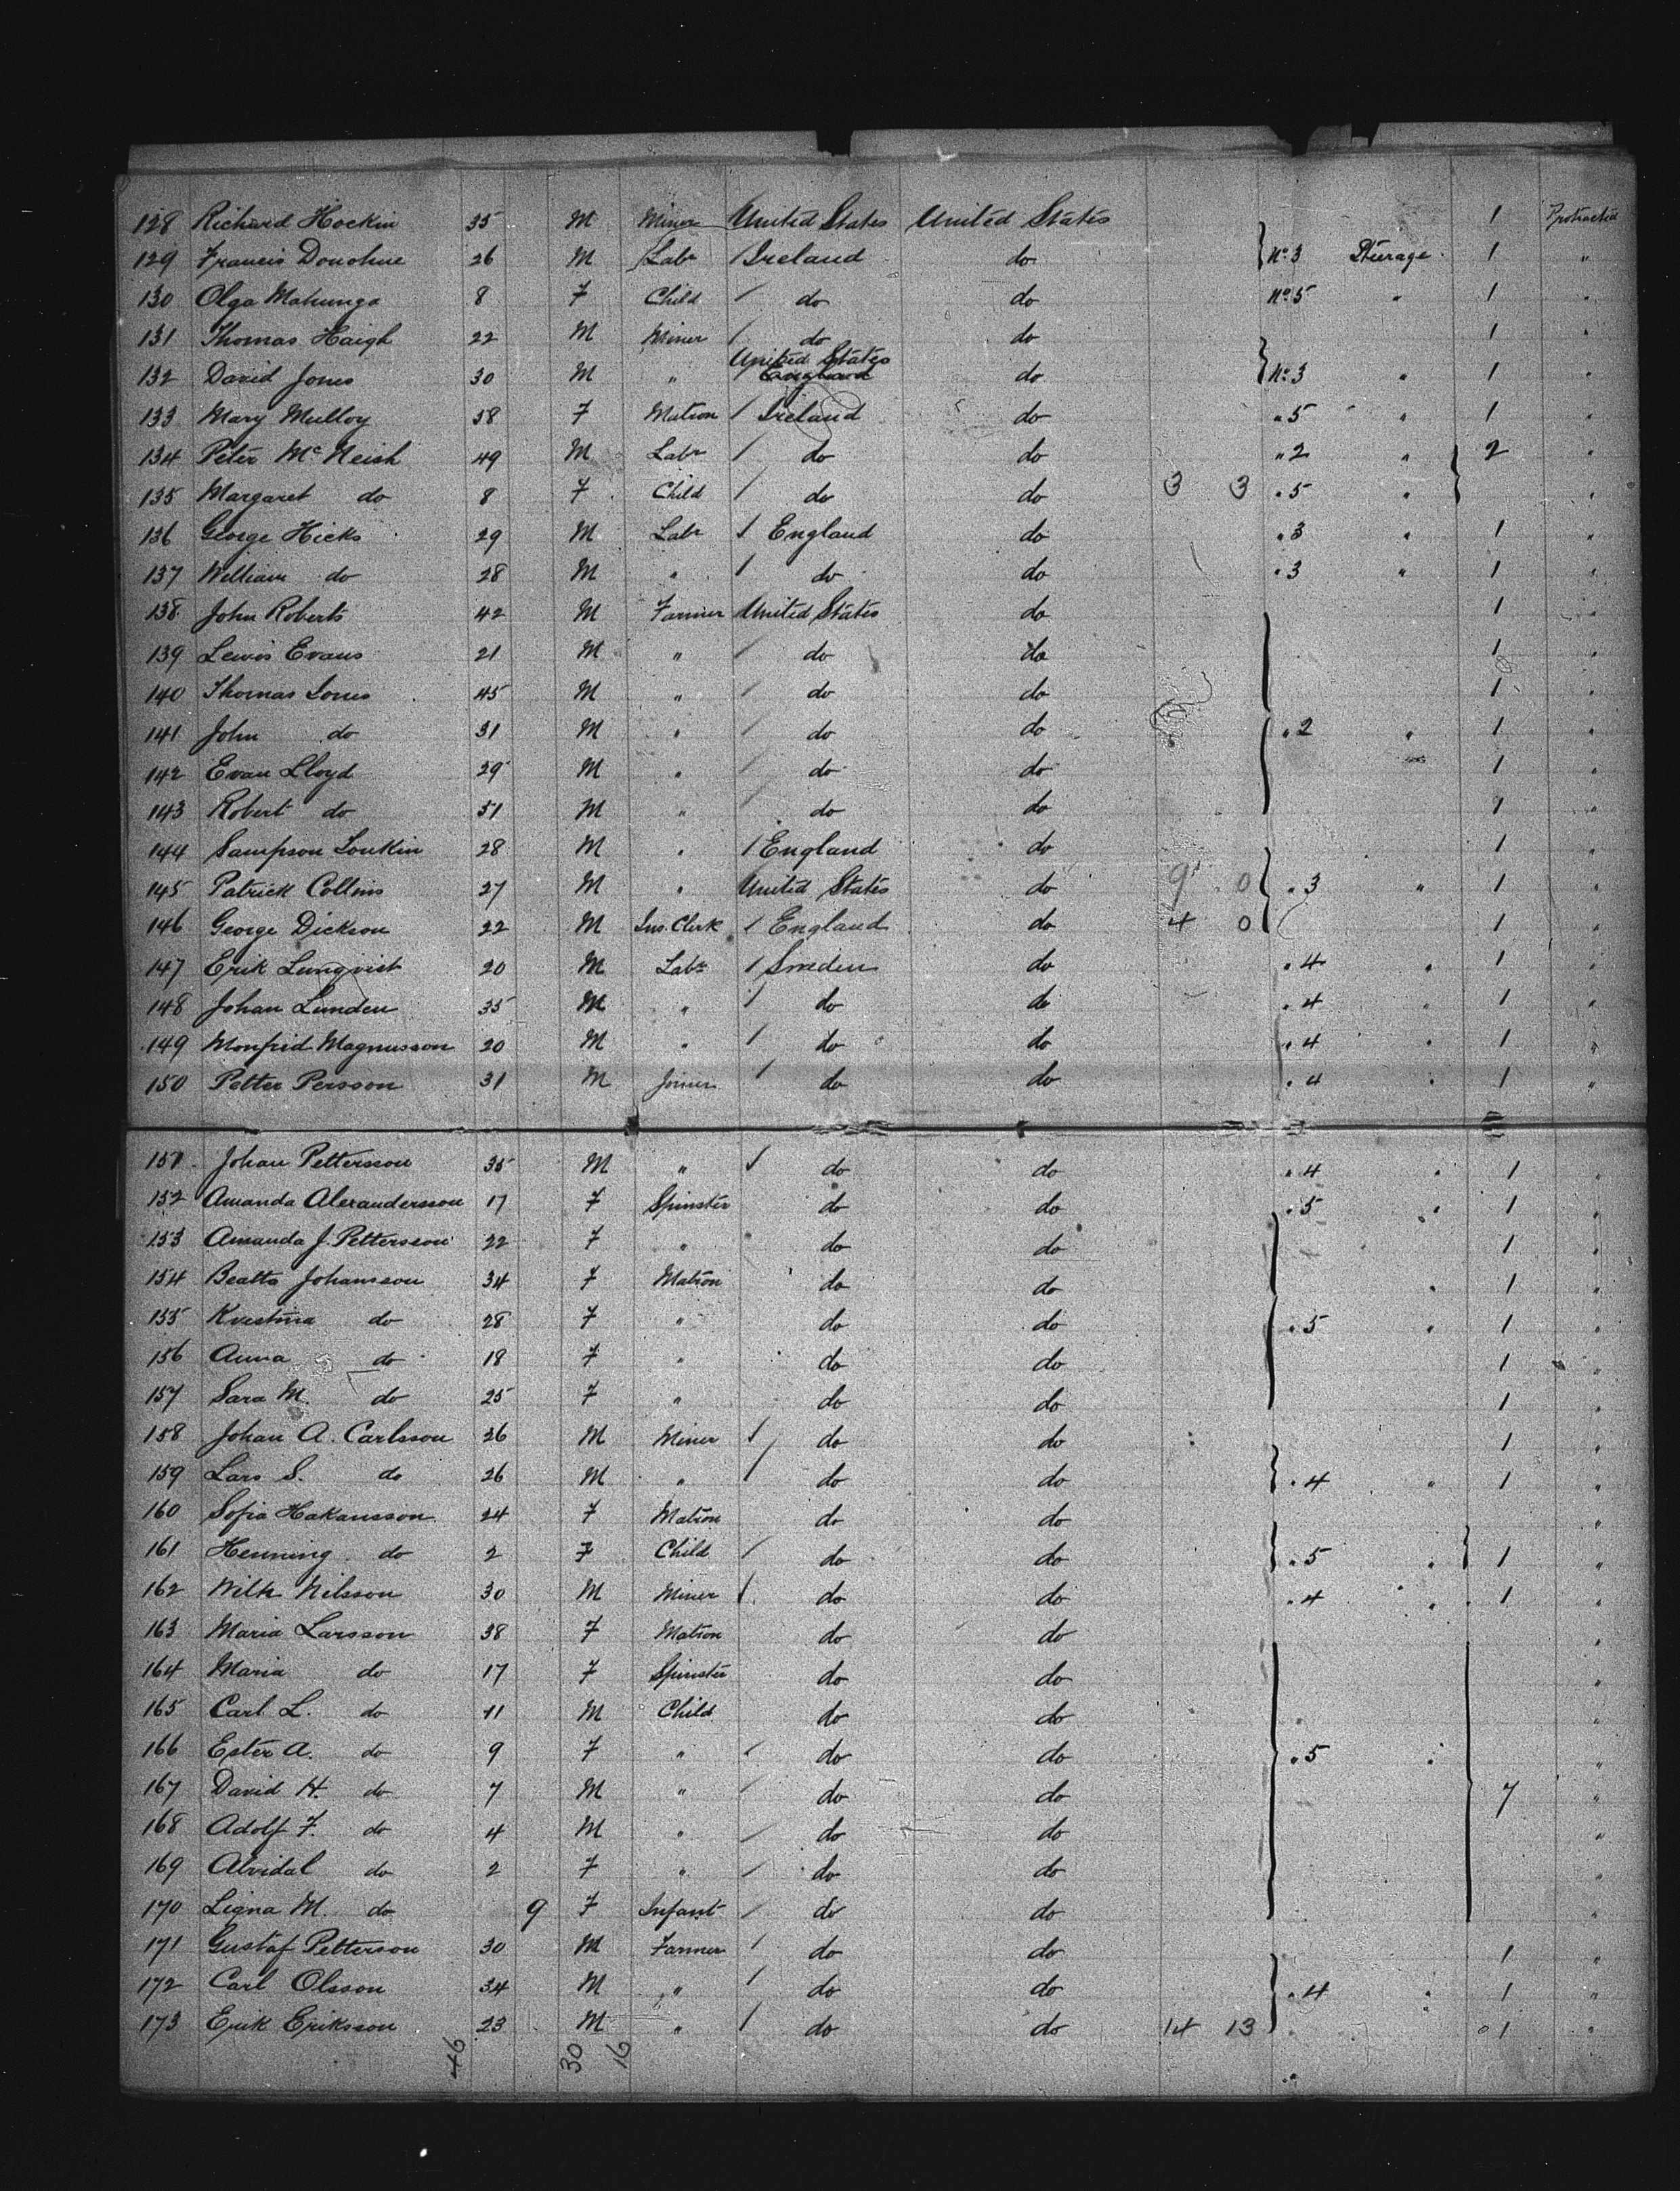 128 Richard Hockin 35 M Miner United States United States 1 Protracted
129 Francis Donohue 26 M Labr / Ireland do No 3 Steerage 1 "
130 Olga Mahunga 8 F Child / do do No 5 " 1 "
131 Thomas Haigh 22 M Miner / do do 1 "
132 David Jones 30 M " United States England do No 3 " 1 "
133 Mary Mulloy 58 F Matron / Ireland do " 5 " 1 "
134 Peter McNeish 49 M Labr / do do " 2 " 2 "
135 Margaret do 8 F Child / do do 3 3 " 5 " "
136 George Hicks 29 M Labr / England do " 3 " 1 "
137 William do 28 M " / do do " 3 " 1 "
138 John Roberts 42 M Farmer United States do 1 "
139 Lewis Evans 21 M " / do do 1 "
140 Thomas Jones 45 M " / do do 1 "
141 John do 31 M " / do do " 2 " 1 "
142 Evan Lloyd 29 M " / do do 1 "
143 Robert do 51 M " / do do 1 "
144 Sampson Lonkin 28 M " / England do 1 "
145 Patrick Collins 27 M " United States do 9 0 " 3 " 1 "
146 George Dickson 22 M Ins. Clerk / England do 4 0 1 "
147 Erik Lunqvist 20 M Labr / Sweden do " 4 " 1 "
148 Johan Lunden 35 M " / do do " 4 " 1 "
149 Monfrid Magnusson 20 M " / do do " 4 " 1 "
150 Petter Persson 31 M Joiner / do do " 4 " 1 "
151 Johan Pettersson 35 M " / do do " 4 " 1 "
152 Amanda Alexandersson 17 F Spinster do do " 5 " 1 "
153 Amanda J. Pettersson 22 F " do do 1 "
154 Beatta Johansson 34 F Matron do do " 1 "
155 Kristina do 28 F " do do " 5 " 1 "
156 Anna do 18 F " do do 1 "
157 Sara M. do 25 F " do do 1 "
158 Johan A. Carlsson 26 M Miner / do do 1 "
159 Lars S. do 26 M " / do do " 4 " 1 "
160 Sofia Hakansson 24 F Matron do do "
161 Henning do 2 F Child / do do " 5 " 1 "
162 Wilh Nilsson 30 M Miner / do do " 4 " 1 "
163 Maria Larsson 38 F Matron do do "
164 Maria do 17 F Spinster do do "
165 Carl L. do 11 M Child do do "
166 Ester A. do 9 F " / do do " 5 " "
167 David H. do 7 M " / do do 7 "
168 Adolf F. do 4 M " / do do "
169 Alvidal do 2 F " / do do "
170 Ligna M. do 9 F Infant / do do "
171 Gustaf Petterson 30 M Farmer / do do 1 "
172 Carl Olsson 34 M " / do do " 4 " 1 "
173 Erik Eriksson 23 M " / do do 14 13 1 "
46 30 16